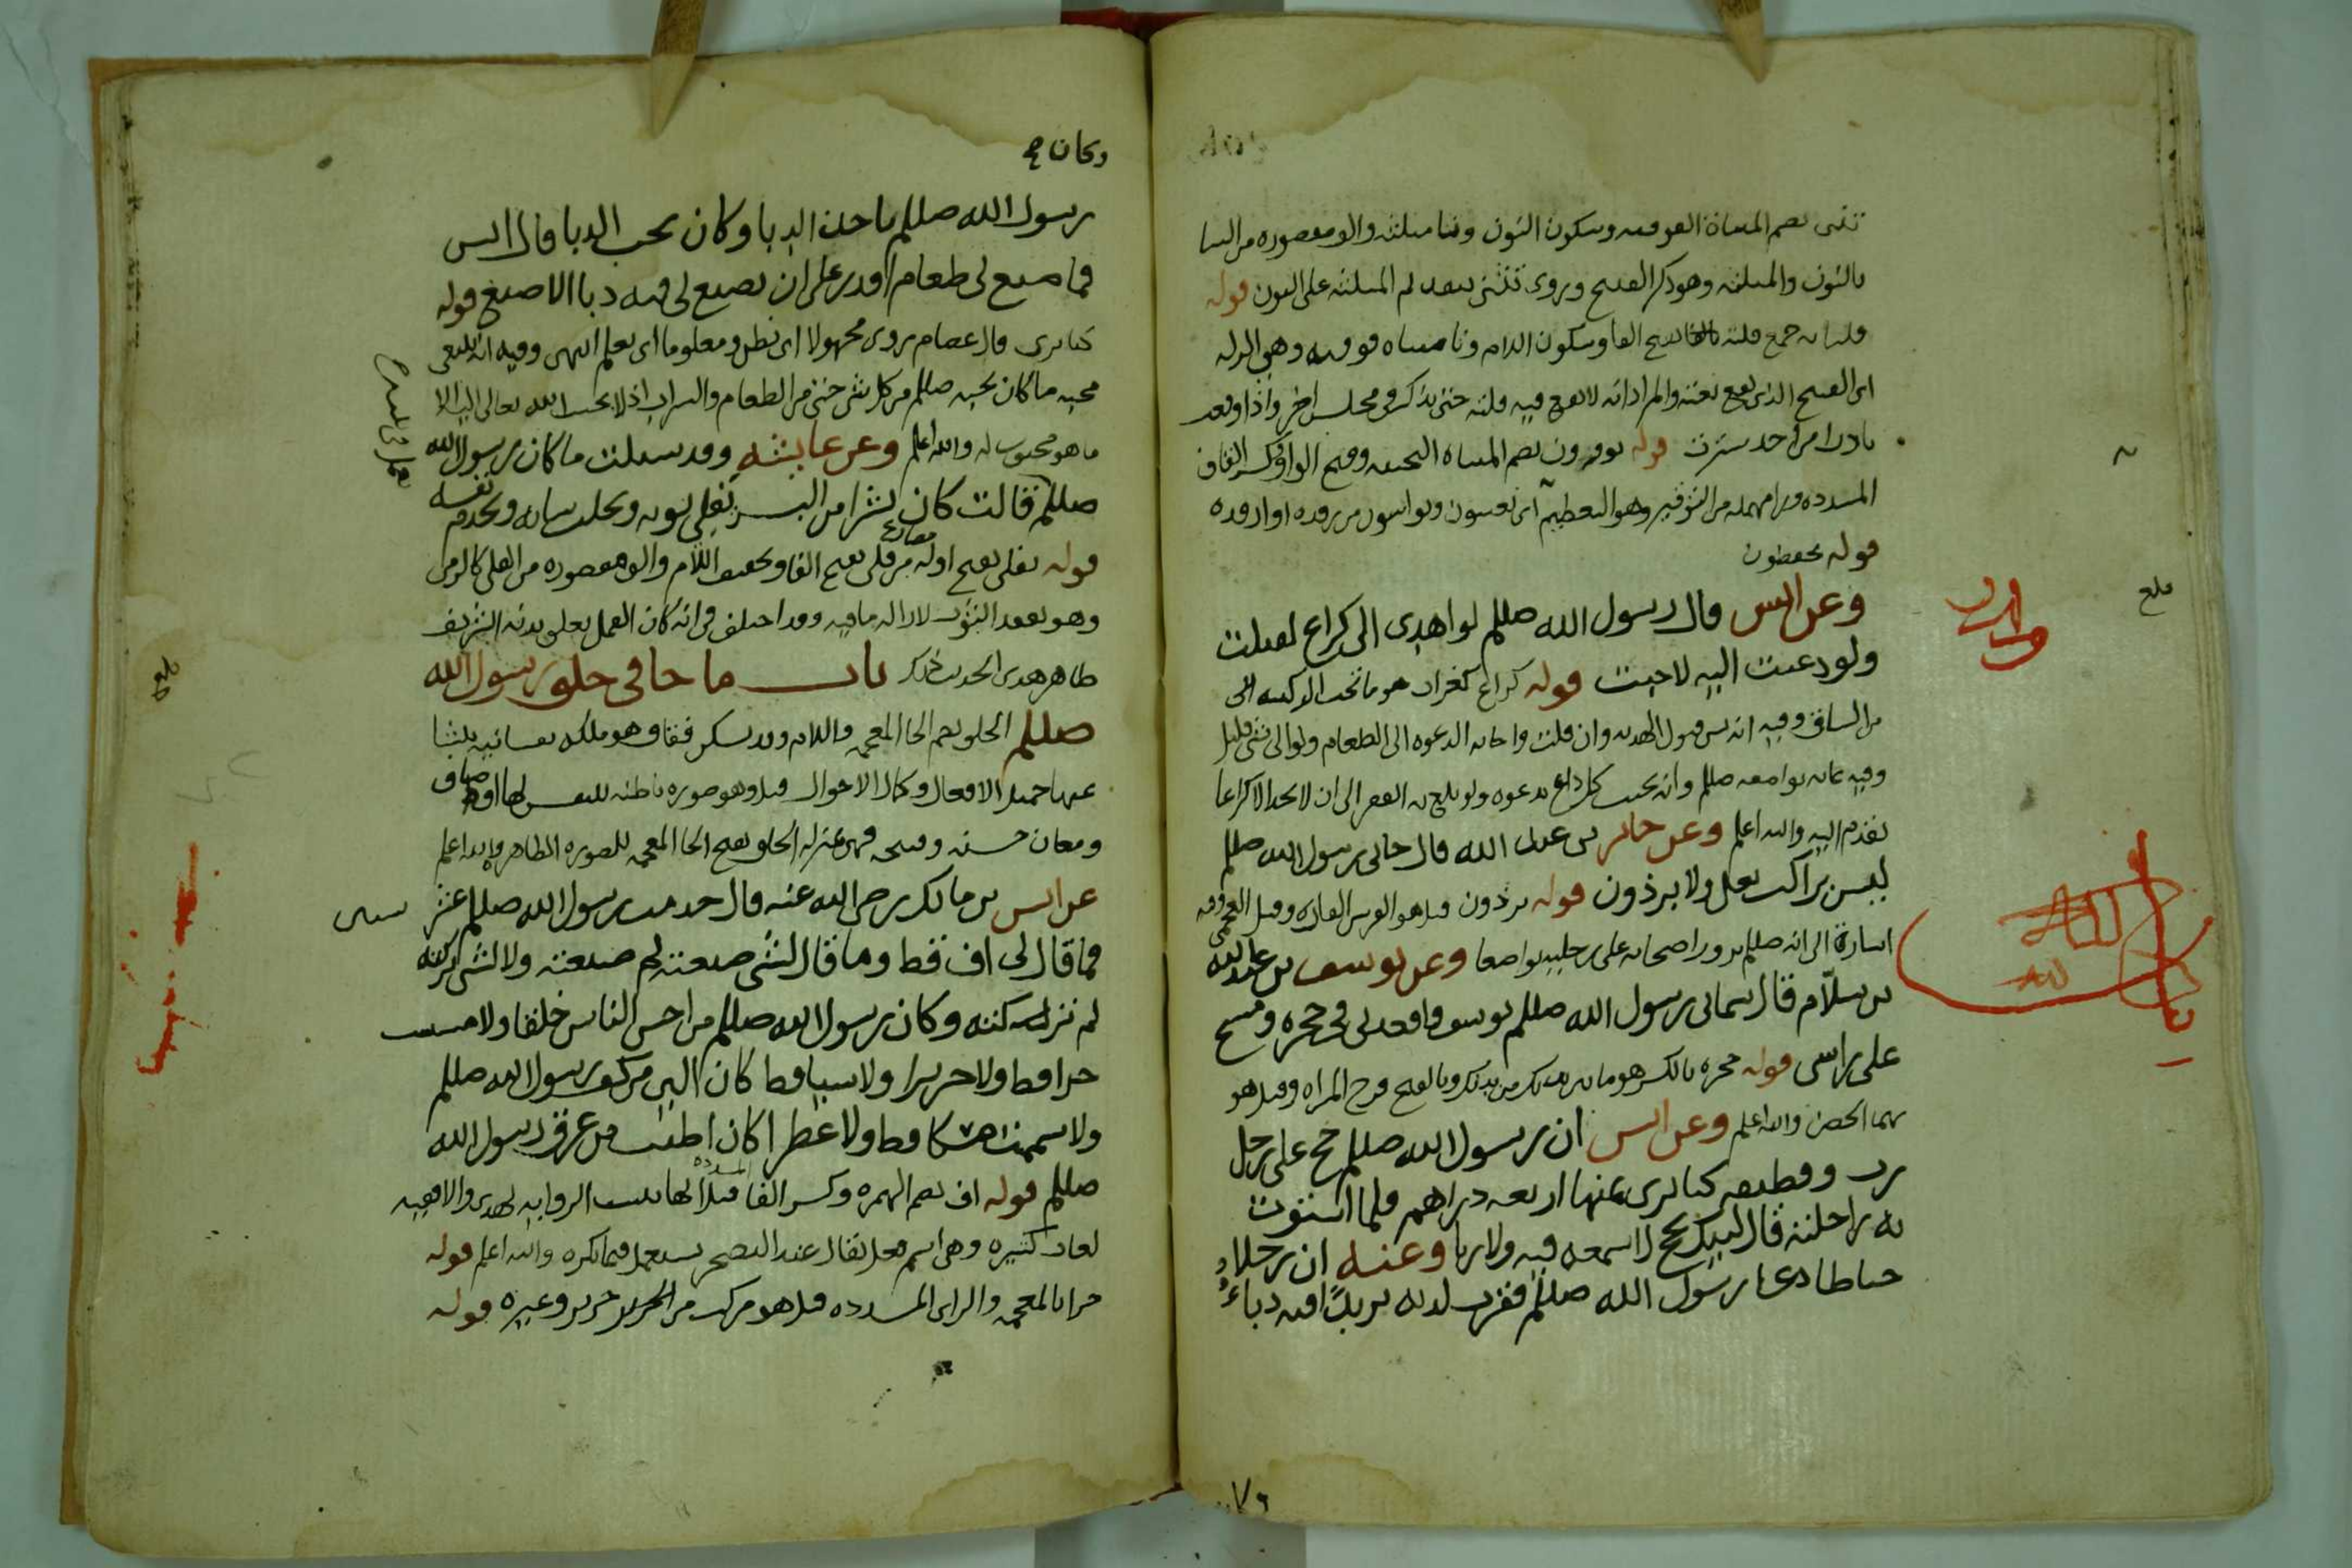 تنثى بضم المثناة الفوقيه وسكون النون وثا مثلثه والف مقصوره من النثا
بالنون والمثلثه وهو ذكر القبيح وروى تنثنى بتقديم المثلثه على النون قوله
فلتاته جمع فلته بفتح الفا وسكون اللام وتا مثناه فوقيه وهي الزله
اى القبيح الذى يقع بغتة والمراد انه لا يقع فيه فلته حتى تذكر في مجلس اخر واذا وقعت
نادرا من احد سترت قوله يوقرون بضم المثناه التحتيه وفتح الواو وكسر القاف
المشدده ورا مهمله من التوقير وهو التعظيم اى
قوله يحفظون
وعن انس قال رسول الله صللم لو اهدى الى كراع لقبلت
ولو دعيت اليه لاجبت قوله كراع كغراب هو ما تحت الركبه الى
من الساق وفيه انه يسن قبول الهديه وان قلت واجابه الدعوه الى الطعام ولو الى شى قليل
وفيه غايه تواضعه صللم وانه يجيب كل داع بدعوه ولو بلغ به الفقر الى ان لا يجد الا كراعا
يقدم اليه والله اعلم وعن جابر بن عبد الله قال جانى رسول الله صللم
ليس براكب بغل ولا برذون قوله برذون قيل هو الفرس الفاره وقيل العجمى وفيه
اشارة الى انه صللم يزور اصحابه على رجليه تواضعا وعن يوسف بن عبد الله
بن سلام قال سمانى رسول الله صللم يوسف واقعدنى في حجره ومسح
على راسى قوله حجره بالكسر هو ما بين يديك من بدنك وبالفتح فرج المراه وقيل هو
بهما الحضن والله اعلم وعن انس ان رسول الله صللم حج على رحل
رث وقطيفه كنا نرى ثمنها اربعه دراهم فلما استوت
به راحلته قال لبيك بحج لا سمعه فيه ولا ريا وعنه ان رجلا
خياطا دعا رسول الله صللم فقرب لديه ثريدا فيه دباء
وكان
وكان
رسول الله صللم ياخذ الدبا وكان يحب الدبا قال انس
فما صنع لى طعام اقدر على ان يصنع لى فيه دبا الا صنع قوله
كنا نرى قال عصام يروى مجهولا اى نظن ومعلوما اى نعلم انتهى وفيه انه ينبغى
محبه ما كان يحبه صللم من كل شى حتى من الطعام والشراب اذ لا يحبب الله تعالى اليه الا
ما هو محبوب له والله اعلم وعن عايشه وقد سئلت ما كان رسول الله
صللم قالت كان بشرا من البشر يفلى ثوبه ويحلب شاته ويخدم نفسه
قوله يفلى بفتح اوله مضارع من فلى بفتح الفا وتخفيف اللام والف مقصوره من الفلى كالرمى
وهو تفقد الثوب لازاله ما فيه وقد اختلف في انه كان القمل يعلو بدنه الشريف
ظاهر هذى الحديث ذلك باب ما جا في خلق رسول الله
صللم الخلق بضم الخا المعجمه واللام وقد تسكن فقاف هو ملكه نفسانيه ينشا
عنها جميل الافعال وكمال الاحوال قيل وهو صوره باطنه للنفس لها اوصاف
ومعان حسنه وقبيحه فهى بمنزله الخلق بفتح الخا المعجمه للصوره الظاهره والله اعلم
عن انس بن مالك رضى الله عنه قال خدمت رسول الله صللم عشر سنين
فما قال لى اف قط وما قال لشى صنعته لم صنعته ولا لشى تركته
لم تركته وكان رسول الله صللم من احسن الناس خلقا ولا مسست
خزا قط ولا حريرا ولا شيا قط كان الين من كف رسول الله صللم
ولا شممت مسكا قط ولا عطرا كان اطيب من عرق رسول الله
صللم قوله اف بضم الهمزه وكسر الفا المشدده قيل انها بلغت الروايه لهذى والا ففيه
لغات كثيره وهى اسم فعل يقال عند التضجر يستعمل فيما يكره والله اعلم قوله
خزا بالمعجمه والزاى المشدده قيل هو مركب من الحرير حرير وغيره قوله